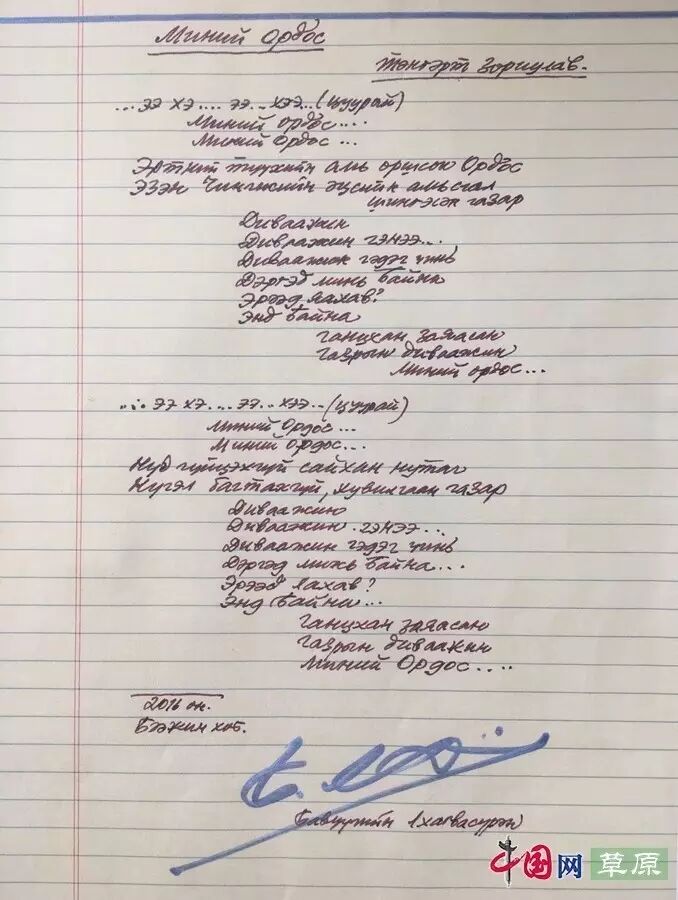 Миний Ордос
Тэнгэрт зориулав.
...ээ хэ.... ээ... хээ...(цуурай)
Миний ордос...
Миний Ордос ...
Эртний түүхийн амь оршсон Ордос
Эзэн Чингисийн эцсийн амьсгал
шингэсэн газар
Диваажин
Диваажин гэнээ...
Диваажин гэдэг чинь
Дэргэд минь байна
Эрээд яахав?
Энд байна
Ганцхан заяасан
Газрын диваажин
Миний ордос...
... ээ хэ.... ээ.. хээ...(цуурай)
Миний Ордос...
Миний ордос...
Нүд гүйцэхгүй сайхан нутаг
Нүгэл багтахгүй, хувилгаан газар
Диваажин
Диваажин гэнээ...
Диваажин гэдэг чинь
Дэргэд минь байна...
Эрээд яахав?
Энд байна...
Ганцхан заяасан
Газрын диваажин
Миний Ордос....
2016 он.
Бээжин хот.
Бавуугийн Лхагвасүрэн
中国网 草原